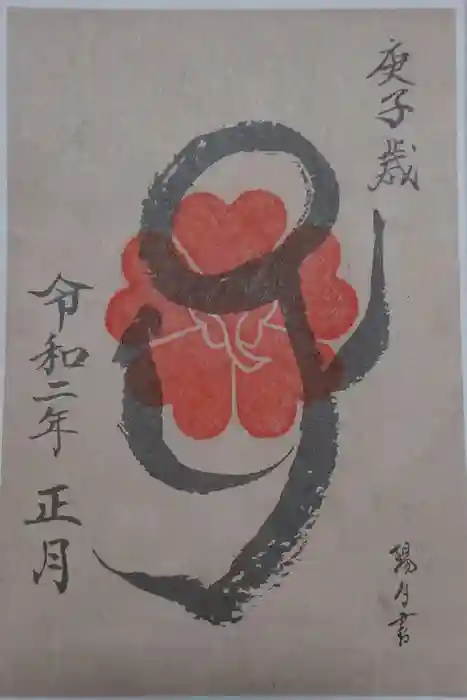 庚子歳
令和二年 正月
書